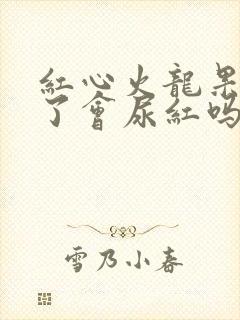 紅心火龍果
了會尿紅嗎
雪乃小春